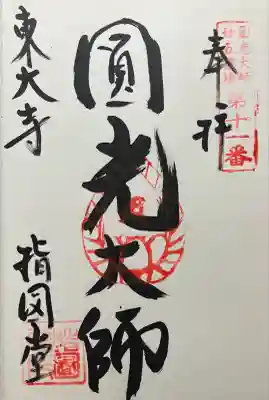 圓光大師
霊場
第十一番
奉拝
圓光大師
東大寺
指図堂